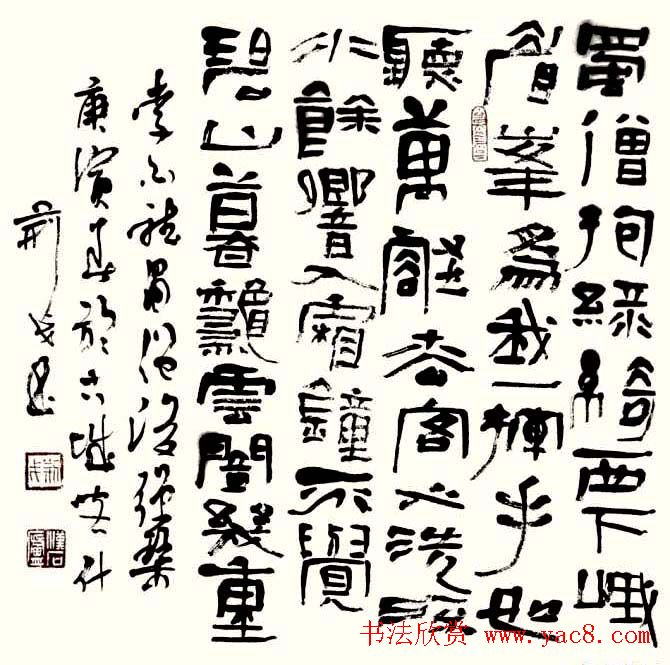 蜀僧抱綠綺西下峨
眉峯爲我一揮手如
聽萬壑松客心洗流
水餘響入霜鐘不覺
碧山暮龝雲闇幾重
李白聽蜀僧浚彈琴
庚寅春於古城
书法欣赏 www.yac8.com